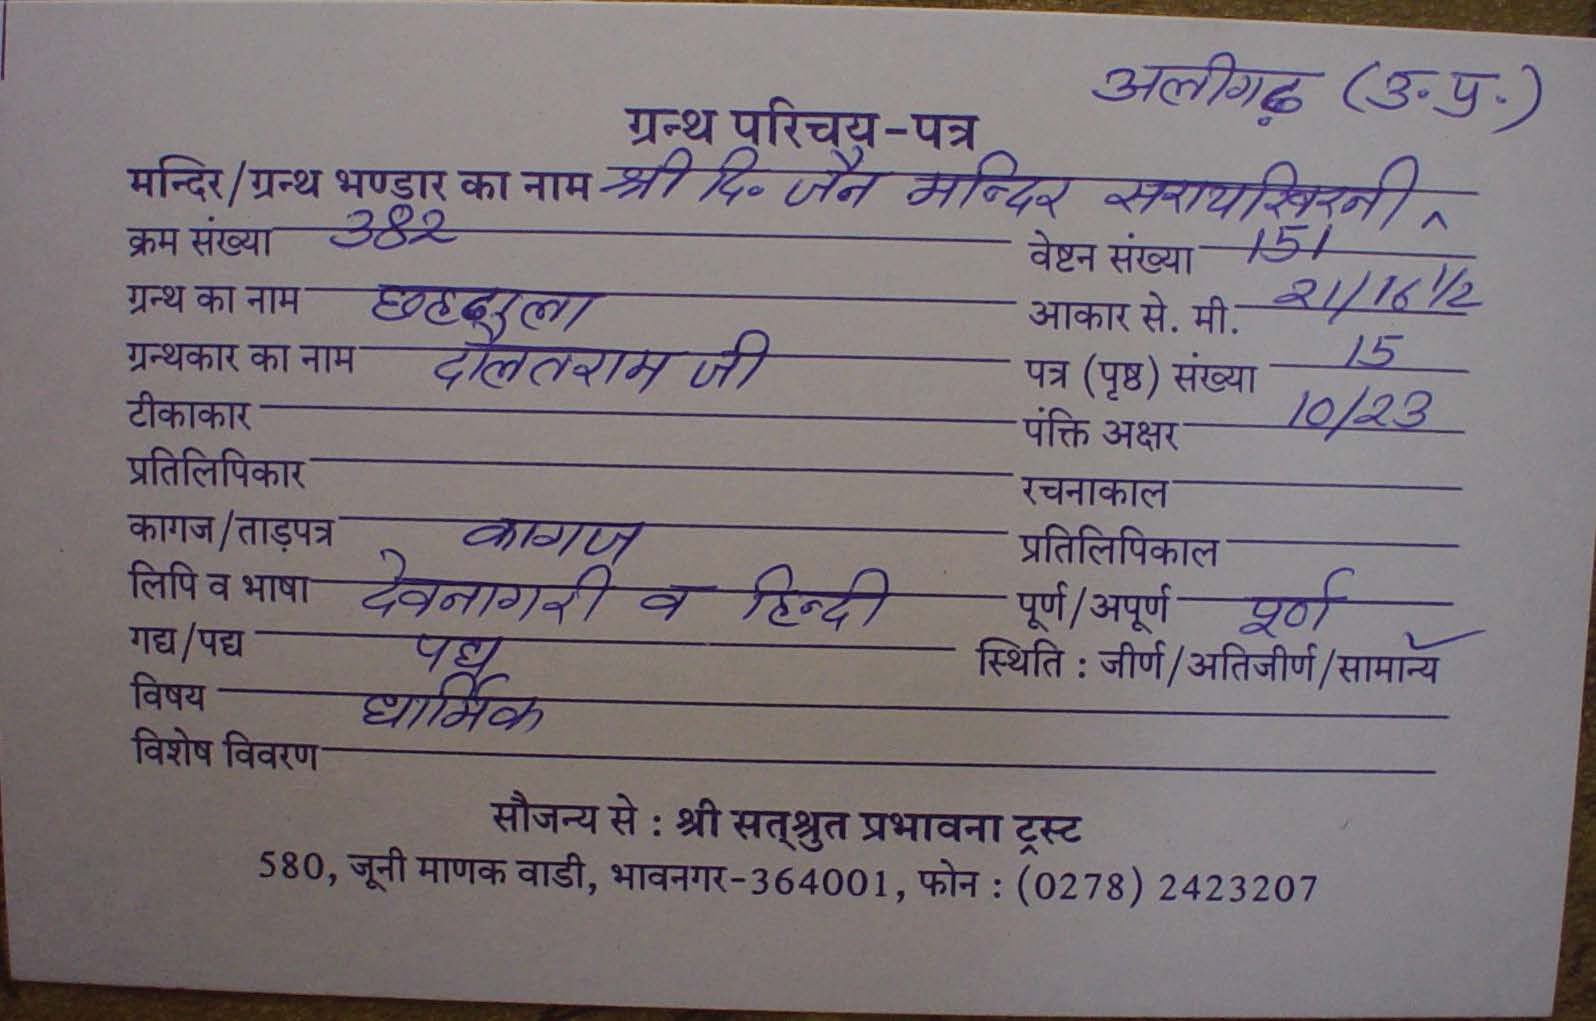 अलीगढ़ (उ.प्र.)
ग्रन्थ परिचय-पत्र
मन्दिर/ग्रन्थ भण्डार का नाम श्री दि॰ जैन मन्दिर सरायखिरनी ^
क्रम संख्या 382 वेष्टन संख्या 151
ग्रन्थ का नाम छहढाला आकार से. मी. 21/16 1/2
ग्रन्थकार का नाम दौलतराम जी पत्र (पृष्ठ) संख्या 15
टीकाकार पंक्ति अक्षर 10/23
प्रतिलिपिकार रचनाकाल
कागज/ताड़पत्र कागज प्रतिलिपिकाल
लिपि व भाषा देवनागरी व हिन्दी पूर्ण/अपूर्ण पूर्ण
गद्य/पद्य पद्य स्थिति : जीर्ण/अतिजीर्ण/सामान्य
विषय धार्मिक
विशेष विवरण
सौजन्य से : श्री सत्‌श्रुत प्रभावना ट्रस्ट
580, जूनी माणक वाडी, भावनगर-364001, फोन : (0278) 2423207